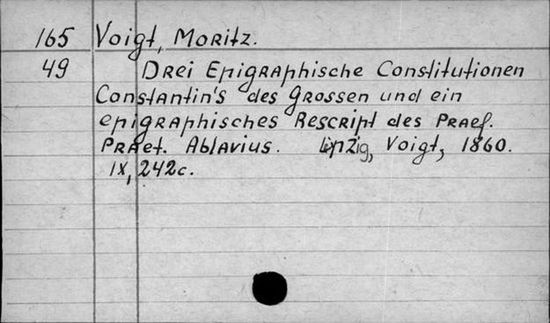 165 Voigt, Moritz.
49 Drei Epigraphische Constitutionen
Constantin's des Grossen und ein
epigraphisches Rescript des Praef.
Praet. Ablavius. Lipzig, Voigt, 1860.
IX, 242c.